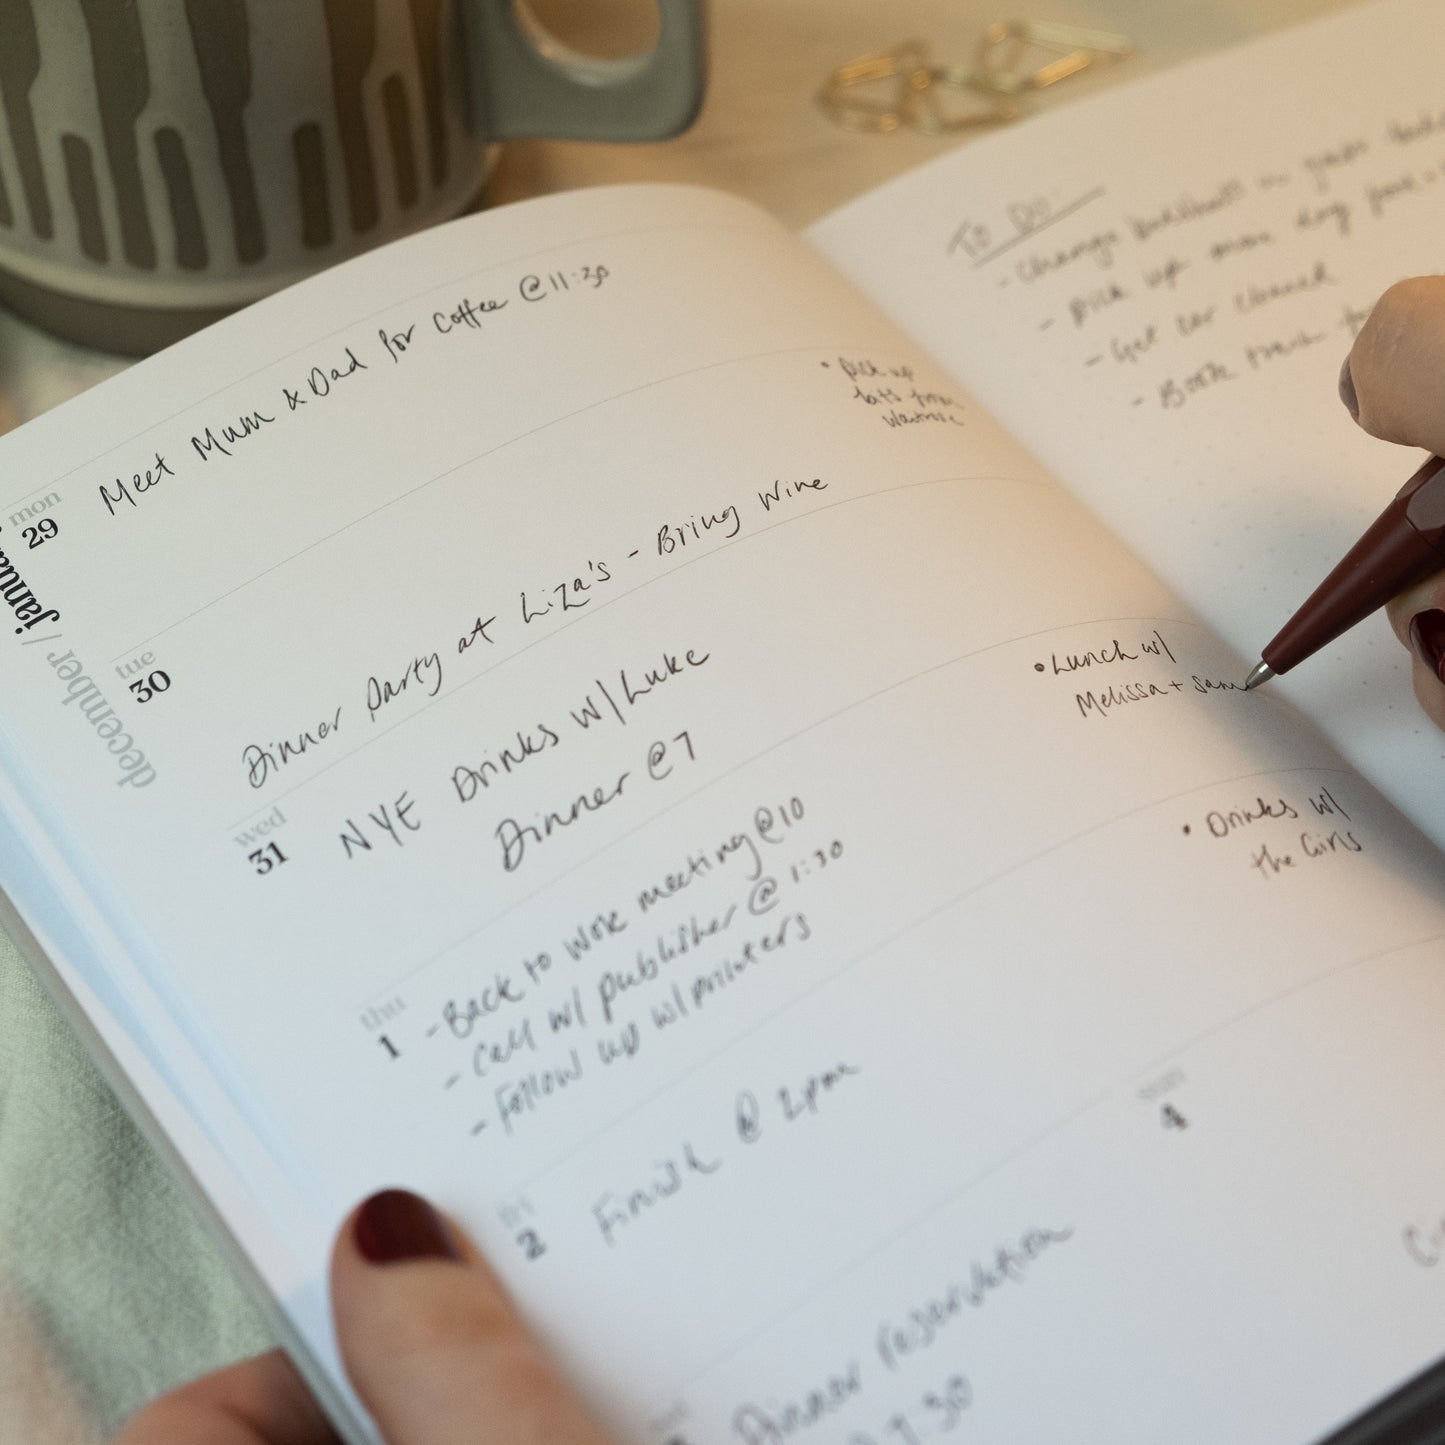 december / janua
mon
29
Meet Mum & Dad for Coffee @ 11:30
tue
30
• pick up
bits from
waitrose
Dinner Party at Liza's - Bring Wine
wed
31
NYE Drinks w/ Luke
Dinner @ 7
thu
1
- Back to work meeting @ 10
- Call w/ publisher @ 1:30
- Follow up w/ printers
• Lunch w/
Melissa + Sam
fri
2
Finish @ 2pm
• Drinks w/
the Girls
Dinner reservation
7:30
sun
4
TO DO:
- Change
- pick up more dog
- Get car cleaned
- Book train